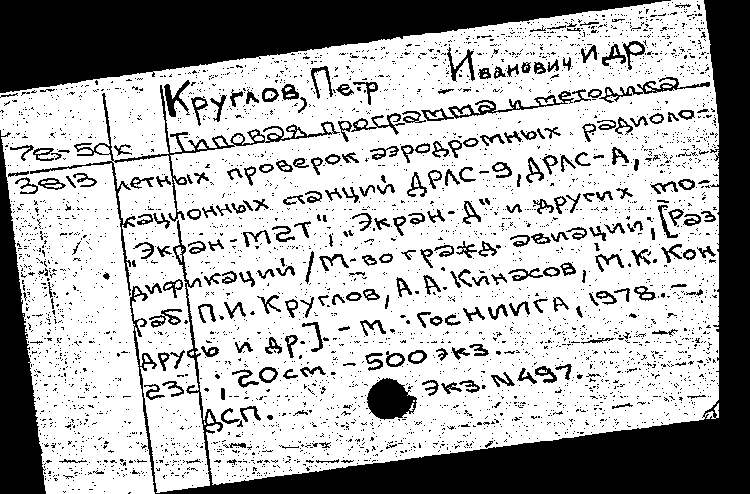 Круглов, Петр Иванович и др
78-50к Типовая программа и методика
3813 летных проверок аэродромных радиоло-
кационных станций ДРЛС-9, ДРЛС-А,
"Экран-М2Т", "Экран-Д" и других мо-
дификаций / М-во гражд. авиации; [Раз-
раб. П.И. Круглов, А.А. Кинасов, М.К. Кон-
друсь и др.]. - М. : ГосНИИГА, 1978. -
23с. ; 20см. - 500 экз.
ДСП. Экз. N497.